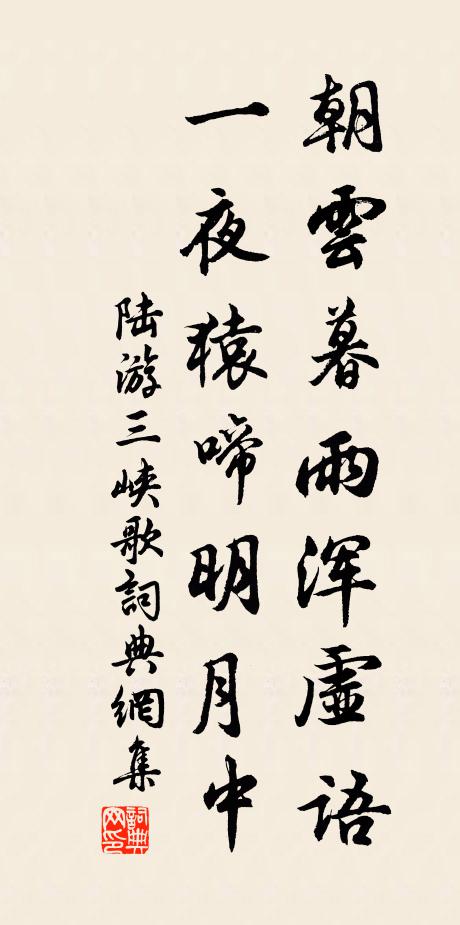 朝雲暮雨浑虚語
一夜猿啼明月中
陆游三峡歌詞典網集
詞典网印